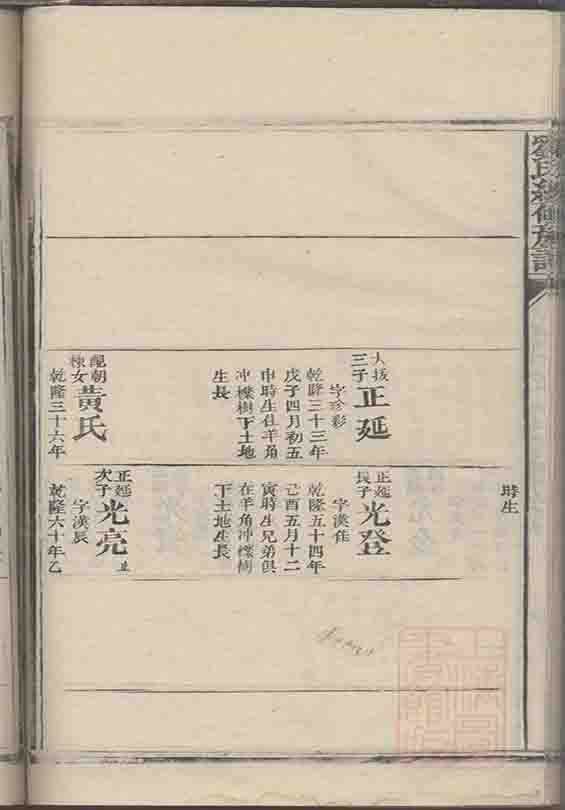 劉氏續修族譜
時生
大拔
三子
正延
字珍彩
乾隆三十三年
戊子四月初五
申時生住羊角
冲櫟樹下土地
生長
配朝
棟女
黃氏
乾隆三十六年
正延
長子
光登
字漢佳
乾隆五十四年
己酉五月十二
寅時生兄弟俱
在羊角冲櫟樹
下土地生長
正延
次子
光亮
字漢辰
乾隆六十年乙